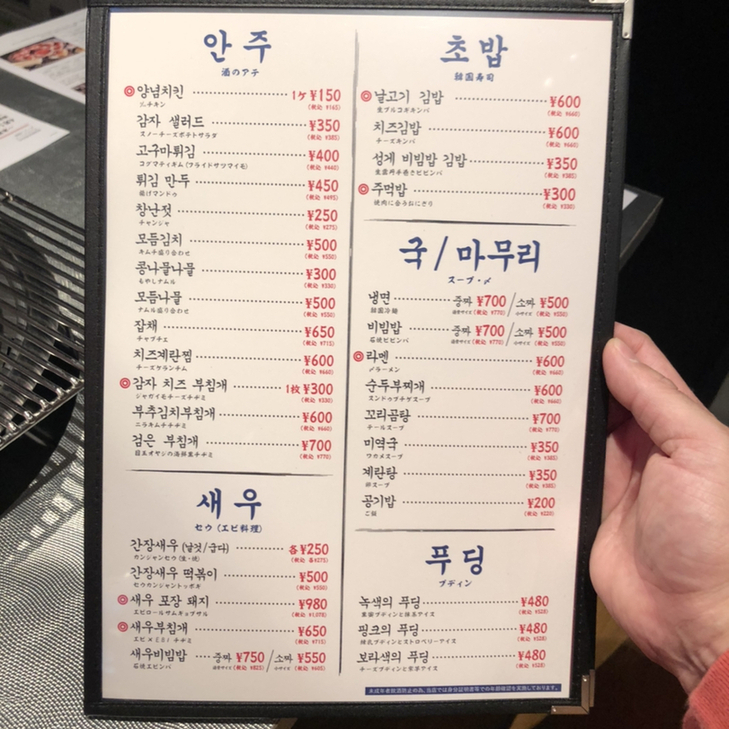 안주
酒のアテ
양념치킨 1ケ ¥150
(税込 ¥165)
감자 샐러드 ¥350
スノーチーズポテトサラダ (税込 ¥385)
고구마튀김 ¥400
コグマティギム (フライドサツマイモ) (税込 ¥440)
튀김 만두 ¥450
揚げマンドゥ (税込 ¥495)
창난젓 ¥250
チャンジャ (税込 ¥275)
모듬김치 ¥500
キムチ盛り合わせ (税込 ¥550)
콩나물나물 ¥300
もやしナムル (税込 ¥330)
모듬나물 ¥500
ナムル盛り合わせ (税込 ¥550)
잡채 ¥650
チャプチェ (税込 ¥715)
치즈계란찜 ¥600
チーズケランチム (税込 ¥660)
감자 치즈 부침개 1枚 ¥300
ジャガイモチーズチヂミ (税込 ¥330)
부추김치부침개 ¥600
ニラキムチチヂミ (税込 ¥660)
검은 부침개 ¥700
(税込 ¥770)
새우
セウ (エビ料理)
간장새우 (날것/굽다) 各¥250
カンジャンセウ (生・焼) (税込 各¥275)
간장새우 떡볶이 ¥500
セウカンジャントッポギ (税込 ¥550)
새우 포장 돼지 ¥980
エビロールサムギョプサル (税込 ¥1,078)
새우부침개 ¥650
(税込 ¥715)
새우비빔밥 중짜 ¥750 / 소짜 ¥550
石焼エビビビンバ (税込 ¥825) 小サイズ (税込 ¥605)
초밥
韓国寿司
날고기 김밥 ¥600
生プルコギキンパ (税込 ¥660)
치즈김밥 ¥600
チーズキンパ (税込 ¥660)
성게 비빔밥 김밥 ¥350
(税込 ¥385)
주먹밥 ¥300
焼肉に合うおにぎり (税込 ¥330)
국/마무리
スープ・〆
냉면 중짜 ¥700 / 소짜 ¥500
韓国冷麺 (税込 ¥770) 小サイズ (税込 ¥550)
비빔밥 중짜 ¥700 / 소짜 ¥500
石焼ビビンバ (税込 ¥770) 小サイズ (税込 ¥550)
라멘 ¥600
〆ラーメン (税込 ¥660)
순두부찌개 ¥600
スンドゥブチゲスープ (税込 ¥660)
꼬리곰탕 ¥700
テールスープ (税込 ¥770)
미역국 ¥350
ワカメスープ (税込 ¥385)
계란탕 ¥350
卵スープ (税込 ¥385)
공기밥 ¥200
ご飯 (税込 ¥220)
푸딩
プディン
녹색의 푸딩 ¥480
(税込 ¥528)
핑크의 푸딩 ¥480
練乳プディンとストロベリーアイス (税込 ¥528)
보라색의 푸딩 ¥480
チーズプディンと紫芋アイス (税込 ¥528)
未成年者飲酒防止の為、当店では身分証明書等での年齢確認を実施しております。